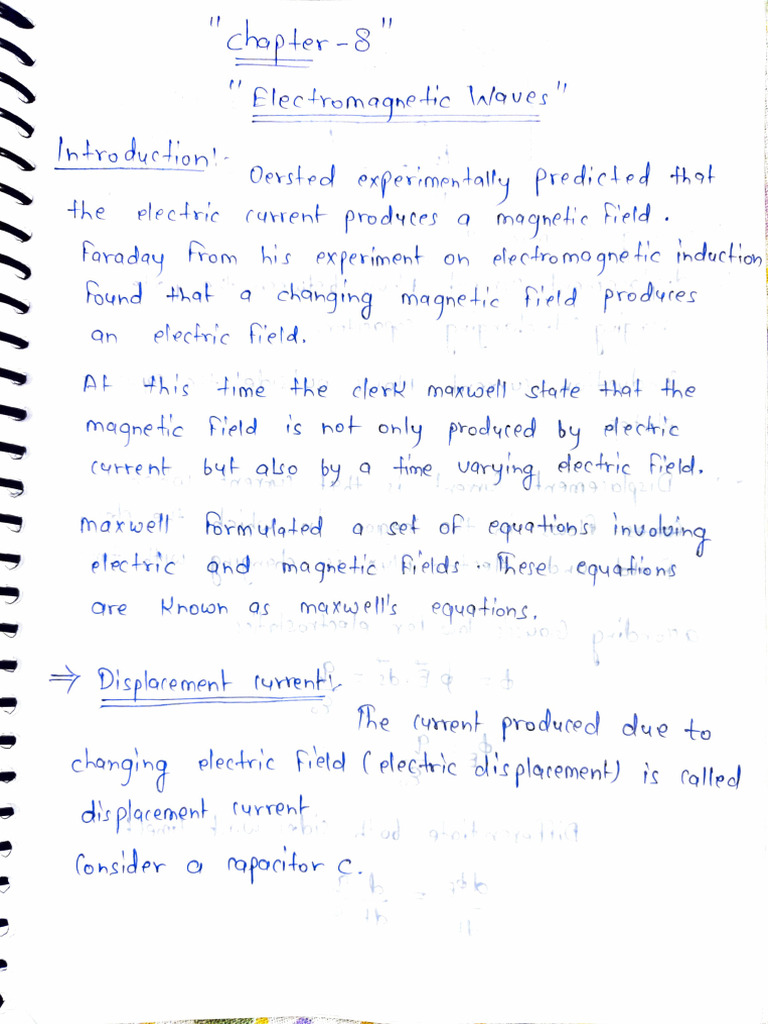 "Chapter-8"
"Electromagnetic Waves"
Introduction:-
Oersted experimentally predicted that
the electric current produces a magnetic field.
Faraday from his experiment on electromagnetic induction
found that a changing magnetic field produces
an electric field.
At this time the clerk maxwell state that the
magnetic field is not only produced by electric
current but also by a time varying electric field.
maxwell formulated a set of equations involving
electric and magnetic fields. These equations
are known as maxwell's equations.
⇒ Displacement current:-
The current produced due to
changing electric field (electric displacement) is called
displacement current
Consider a capacitor C.